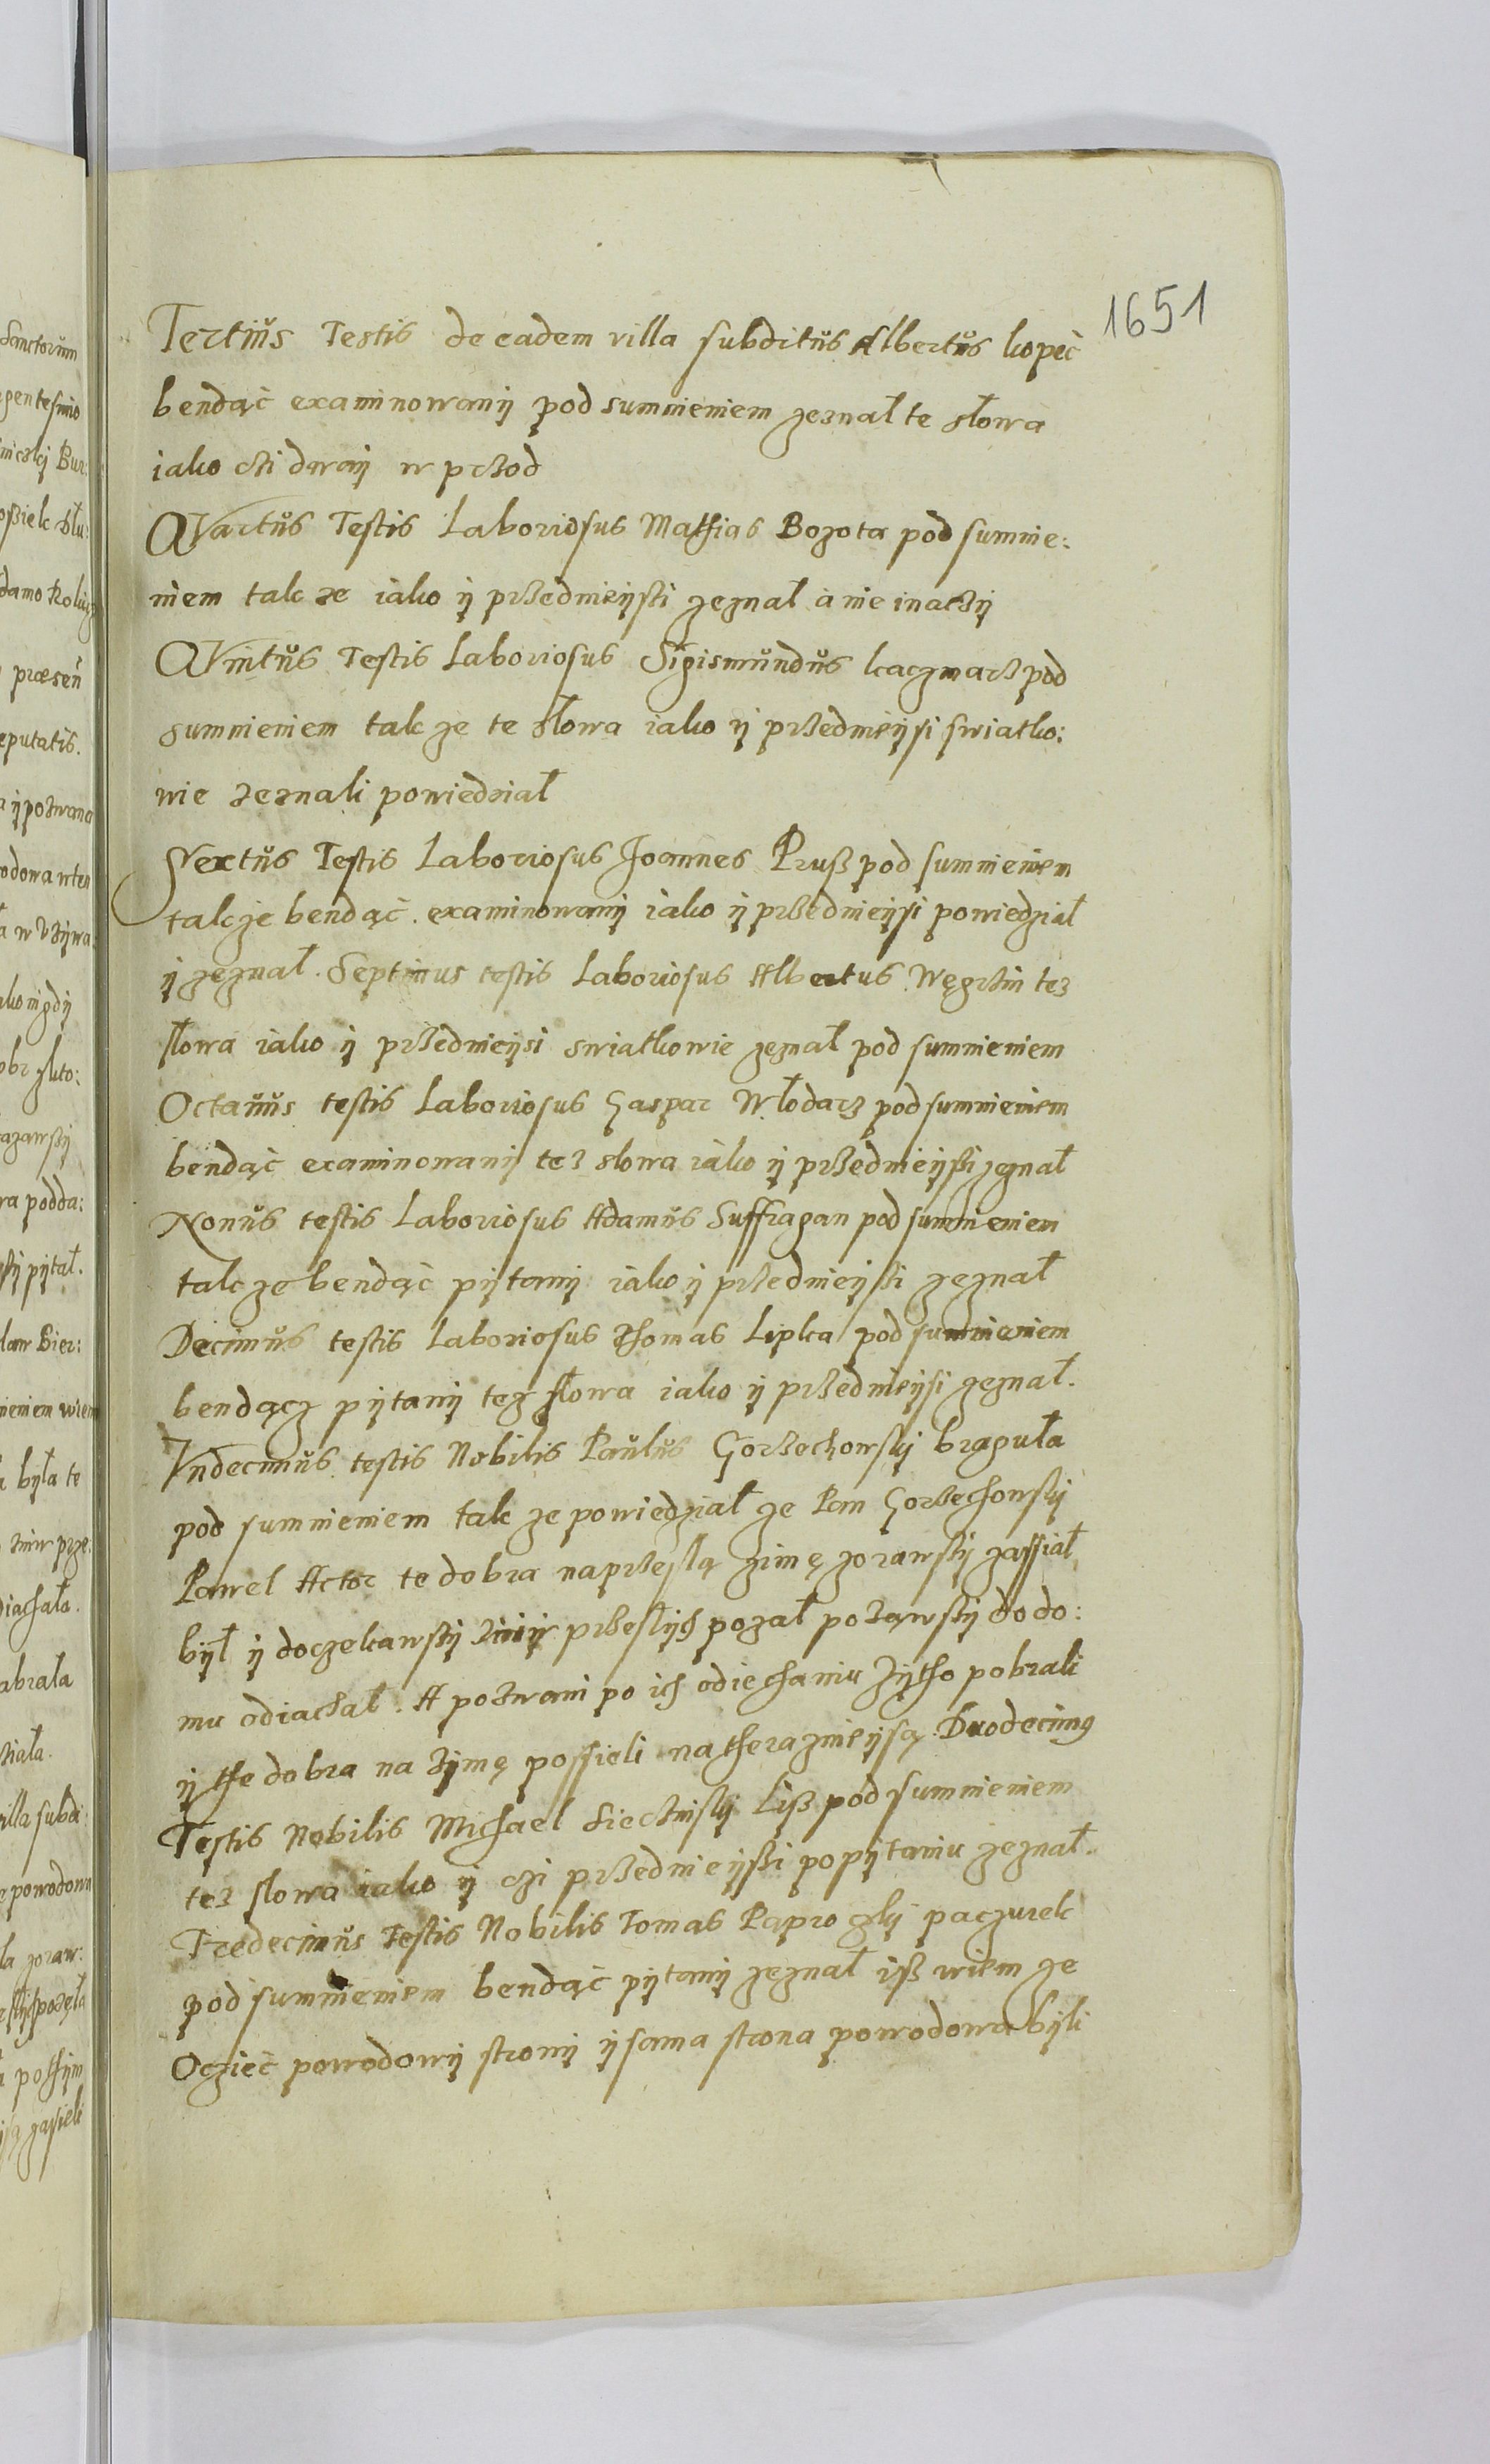 1651
Tertius Testis de eadem villa subditus Albertus kopeć
bendąć examinowanÿ pod sumnieniem zeznał te słowa
iako czi dwaÿ w przod
QVartus Testis Laboriosus Mathias Bozota pod sumnie:
niem tak ze iako ÿ przednieÿszi zeznał a nie inaczÿ
QVintus Testis Laboriosus Sigismundus kaczmarz pod
sumnieniem tak ze te słowa iako ÿ przednieÿsi swiatko:
wie zeznali powiedział
Sextus Testis Laboriosus Joannes Prusz pod sumnieniem
takze bendąć examinowanÿ iako ÿ przednieÿsi powiedział
ÿ zeznał. Septimus testis Laboriosus Albertus Węgrzin tez
słowa iako ÿ przednieÿsi swiatkowie zeznał pod sumnieniem
Octauus testis Laboriosus Gaspar Włodarz pod sumnieniem
bendąć examinowanÿ tez słowa iako ÿ przednieÿszi zeznał
Nonus testis Laboriosus Adamus Suffragan pod sumnieniem
tak ze bendąć pÿtanÿ iako ÿ przednieÿszi zeznał
Decimus testis Laboriosus Thomas Lipka pod sumnieniem
bendącz pÿtanÿ tez słowa iako ÿ przednieÿsi zeznał.
Vndecimus testis Nobilis Paulus Gorzechowskÿ braguła
pod sumnieniem tak ze powiedział ze Pan Gorzechowskÿ
Pawel Actor te dobra na przeszłą zimę zorawszÿ zassiał
bÿł ÿ doczekawszÿ zniw przeszłÿch pozał pozawszÿ do do:
mu odiachał. A pozwani po ich odiechaniu zÿtho pobrali
ÿ the dobra na zÿmę possieli na theraznieÿsą. Duodecimus
Testis Nobilis Michael Siecznskÿ Lisz pod sumnieniem
tez słowa iako ÿ czi przednieÿszi po pÿtaniu zeznał.
Tredecimus Testis Nobilis Tomas Paprozkÿ paczurek
pod sumnieniem bendąć pÿtanÿ zeznał isz wiem ze
Oczieć powodowÿ stronÿ ÿ sama strona powodowa bÿli